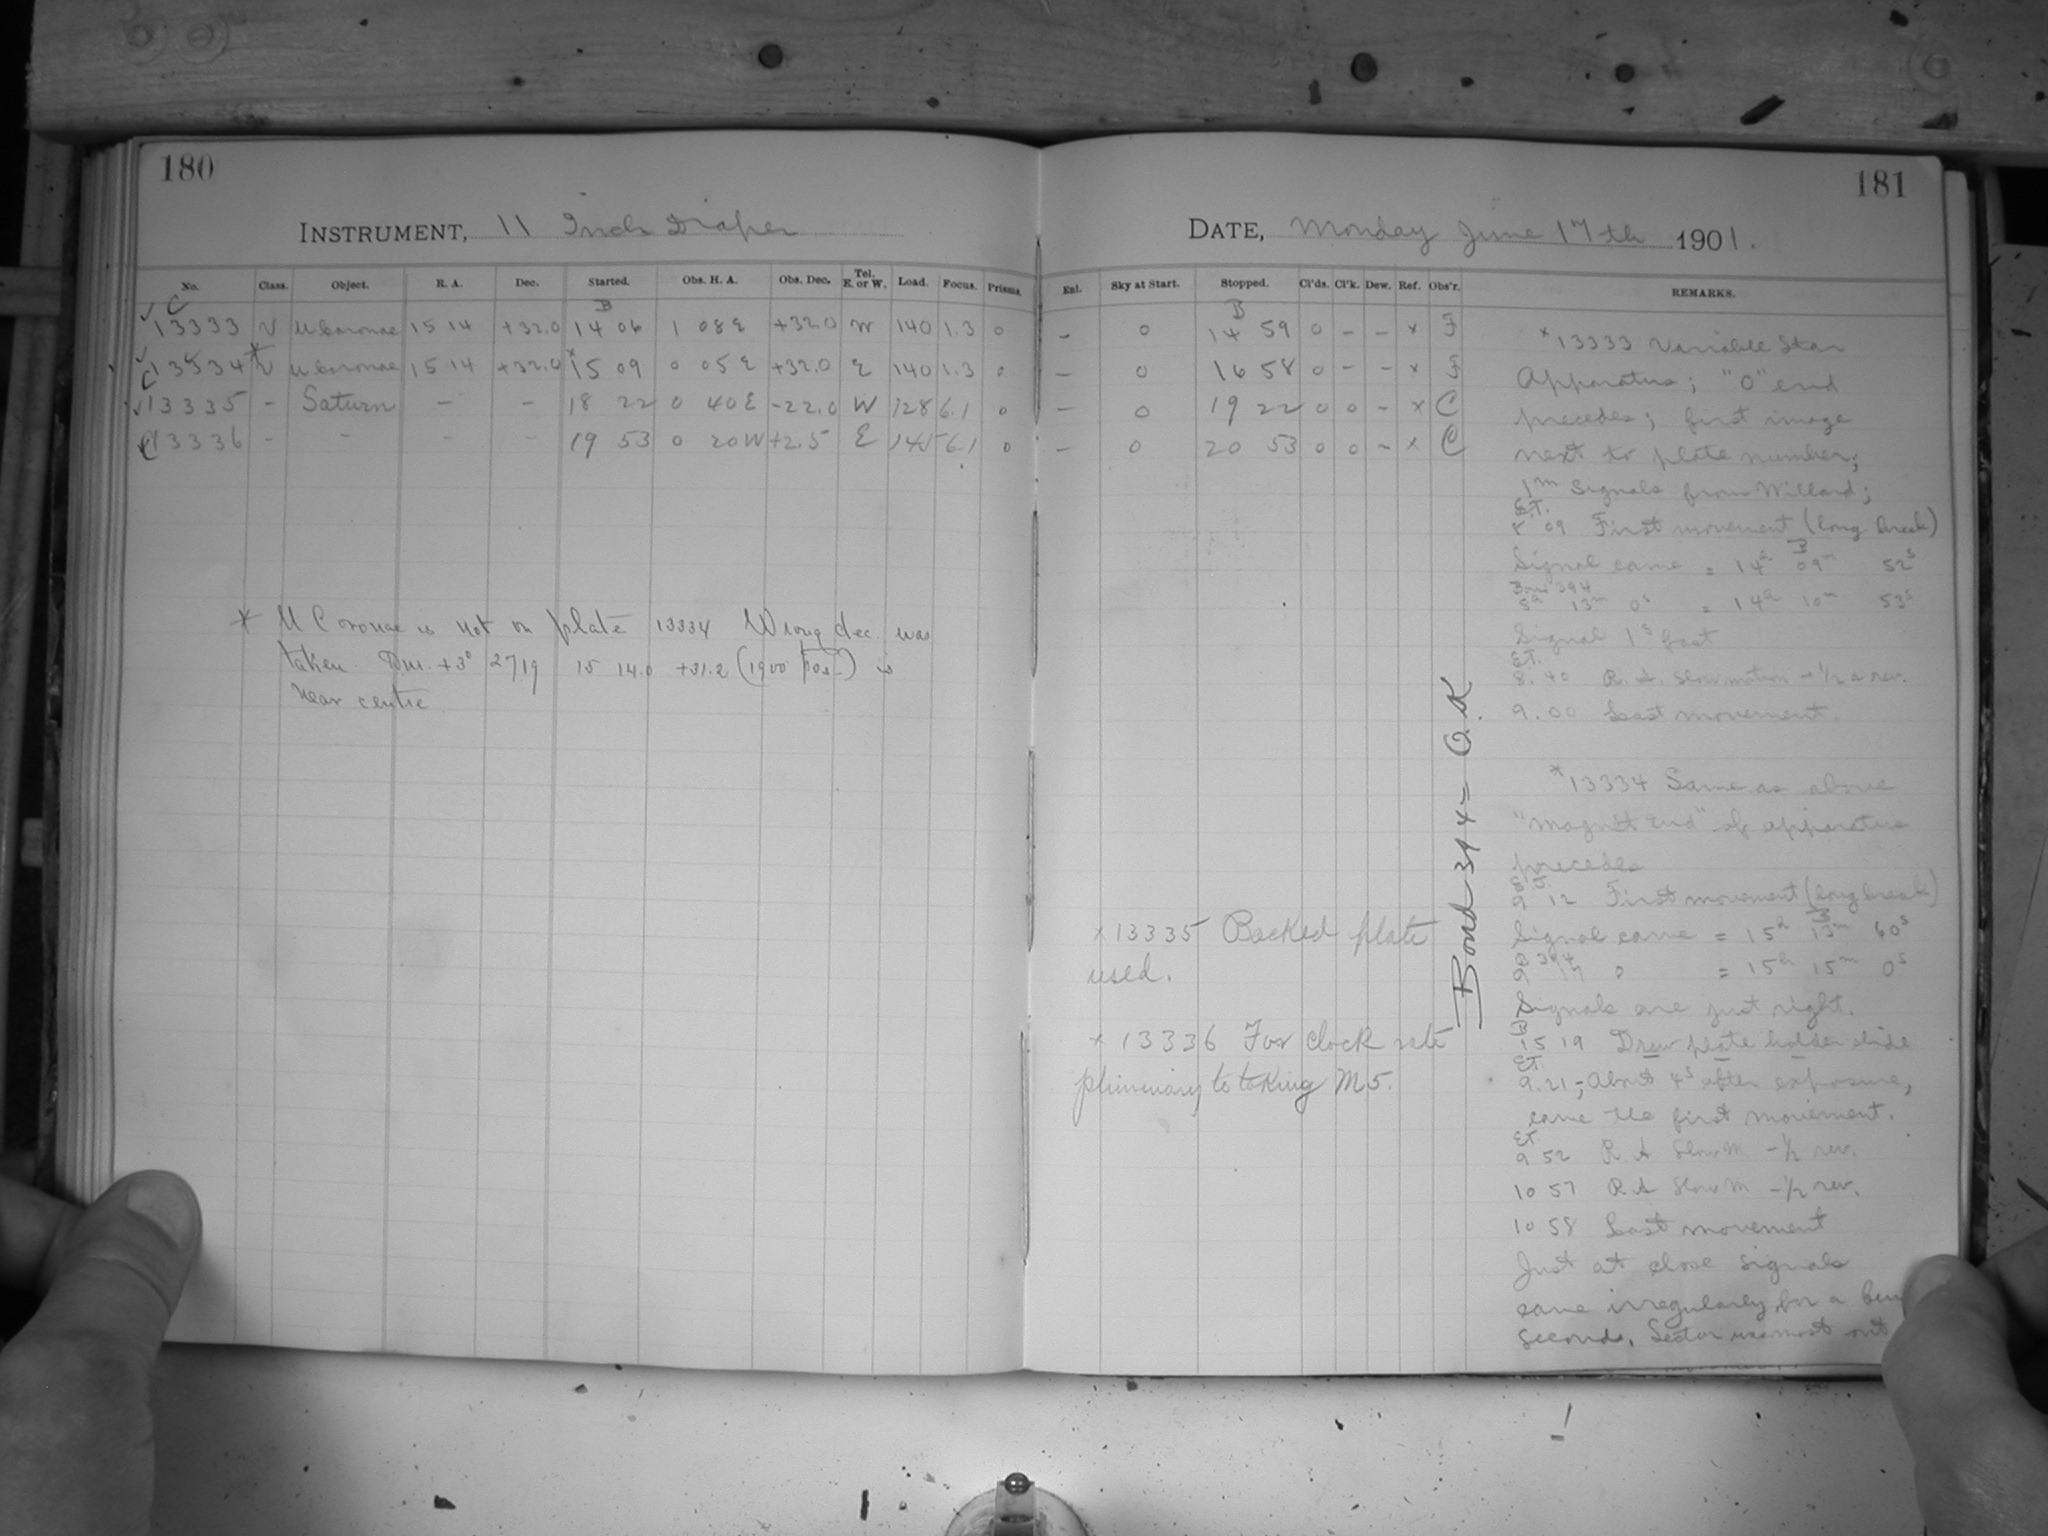 180
INSTRUMENT, 11 Inch Draper
No. Class. Object. R. A. Dec. Started. Obs. H. A. Obs. Dec. Tel. E. or W. Load. Focus. Prisms.
C B
13333 V U Coronae 15 14 +32.0 14 06 1 08 E +32.0 W 140 1.3 0
13334 * V U Coronae 15 14 +32.0 * 15 09 0 05 E +32.0 E 140 1.3 0
C 13335 - Saturn - - 18 22 0 40 E -22.0 W 128 6.1 0
C 13336 - - - - 19 53 0 20 W +2.5 E 145 6.1 0
* U Coronae is not on plate 13334 Wrong dec. was
taken. Dm. +3° 2719 15 14.0 +31.2 (1900 pos.) is
near centre
181
DATE, Monday June 17th 1901.
Enl. Sky at Start. Stopped. Cl'ds. Cl'k. Dew. Ref. Obs'r. REMARKS.
B
- 0 14 59 0 - - x F
- 0 16 58 0 - - x F
- 0 19 22 0 0 - x C
- 0 20 53 0 0 - x C
x 13335 Backed plate
used.
x 13336 For clock rate
pliminary to taking M5.
Bond 394 = O.K
*13333 Variable Star
Apparatus; "O" end
precedes; first image
next to plate number;
1m signals from Willard;
E.T.
8 09 First movement (long break)
B
Signal came = 14h 09m 52s
Bond 394
13m 0s = 14h 10m 53s
Signal 1s fast
E.T.
8.40 R.A. Slow motion -1/2 a rev.
9.00 Last movement.
*13334 Same as above
"Magnet End" of apparatus
precedes
E.T.
9 12 First movement (long break)
B
Signal came = 15h 13m 60s
B 394
9 17 0 = 15h 15m 0s
Signals are just right.
B
15 19 Drew plate holder slide
E.T.
9.21; About 4s after exposure,
came the first movement.
E.T.
9 52 R A Slow M -1/2 rev.
10 57 R A Slow M -1/2 rev.
10 58 Last movement
Just at close signals
came irregularly for a few
seconds. Sector was most out